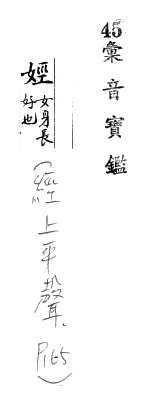 45彙音寶鑑
娙 女身長好也
(經上平聲、P165)